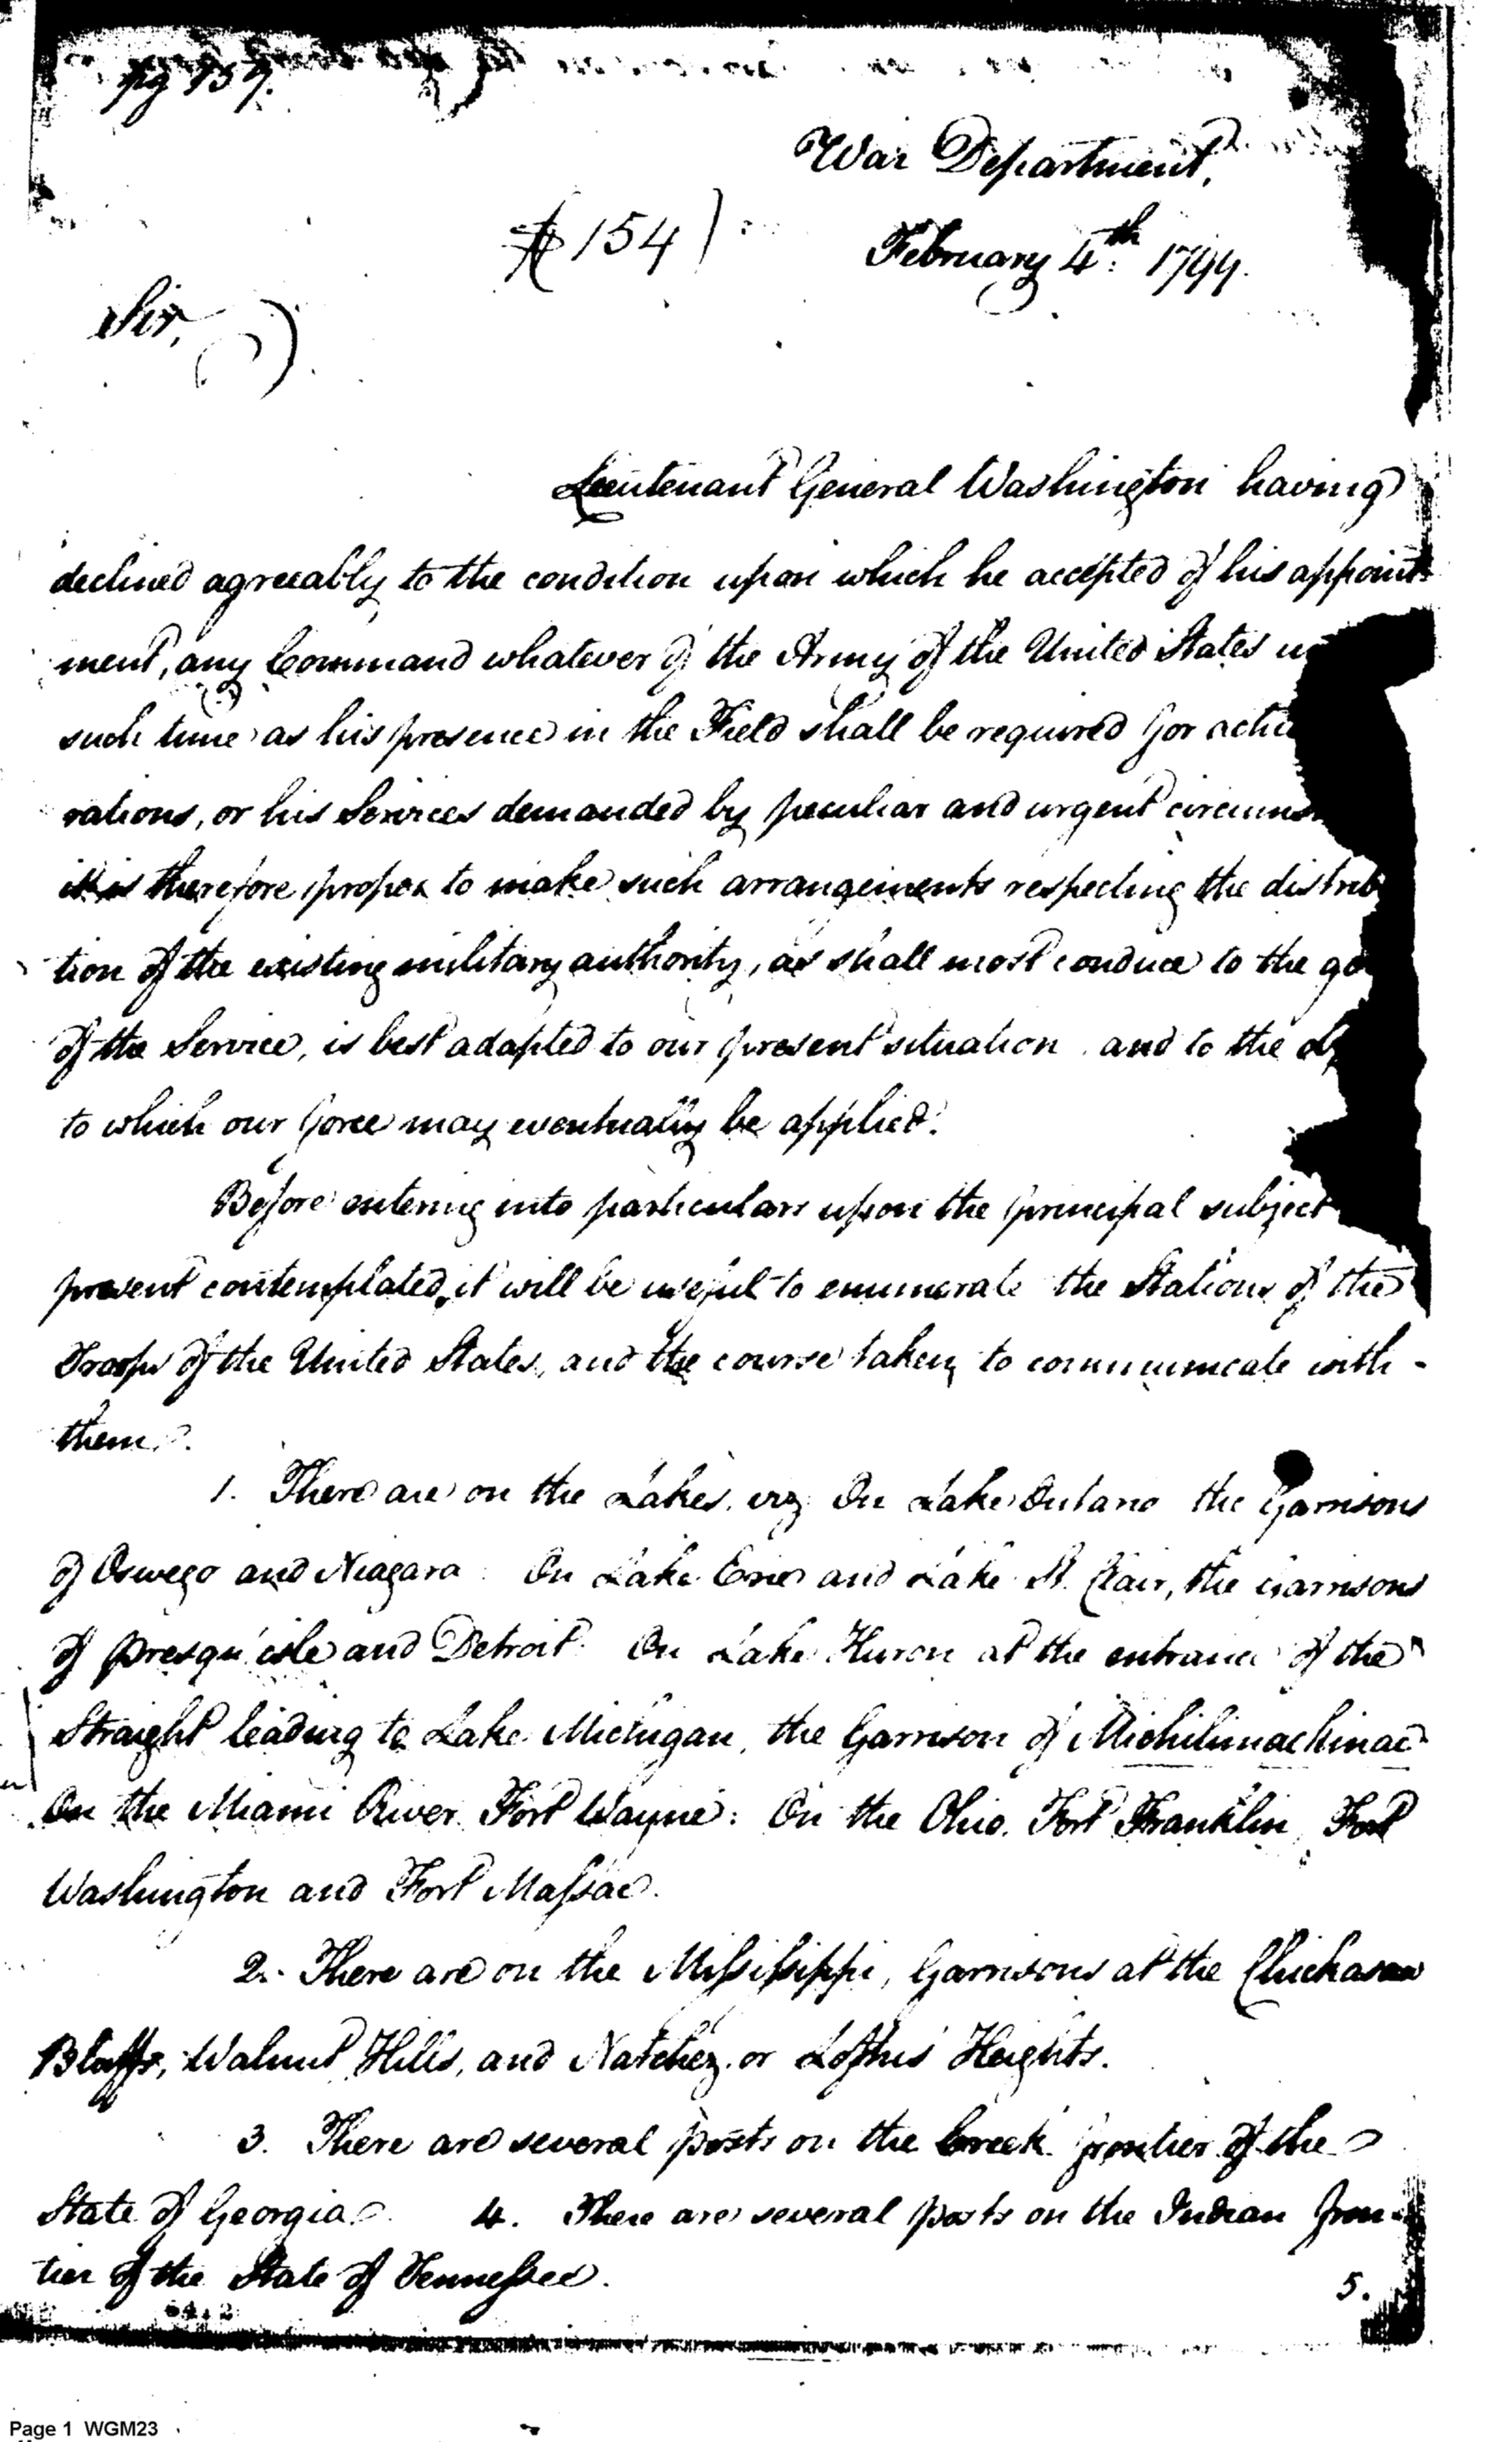 pg 959.
War Department,
154
February 4th: 1799.
Sir,
Lieutenant General Washington having
declined agreeably to the condition upon which he accepted of his appoint-
ment, any Command whatever of the Army of the United States
such time as his presence in the Field shall be required for activ
rations, or his Services demanded by peculiar and urgent circums
it is therefore proper to make such arrangements respecting the distrib
tion of the existing military authority, as shall most conduce to the go
of the Service, is best adapted to our present situation and to the ob
to which our force may eventually be applied.
Before entering into particulars upon the principal subject
present contemplated, it will be useful to enumerate the Stations of the
Troops of the United States, and the course taken to communicate with -
them.
1. There are on the Lakes. viz On Lake Ontario the Garrisons
of Oswego and Niagara. On Lake Erie and Lake St. Clair, the Garrisons
of presqu'isle and Detroit. On Lake Huron at the entrance of the
Straight leading to Lake Michigan, the Garrison of Michilimackinac
On the Miami River Fort Wayne: On the Ohio. Fort Franklin, Fort
Washington and Fort Massac.
2. There are on the Missisippi, Garrisons at the Chickasaw
Bluffs, Walnut Hills, and Natchez or Loftus' Heights.
3. There are several posts on the Creek frontier of the
State of Georgia. 4. There are several posts on the Indian fron-
tier of the State of Tennessee.
5.
Page 1 WGM23